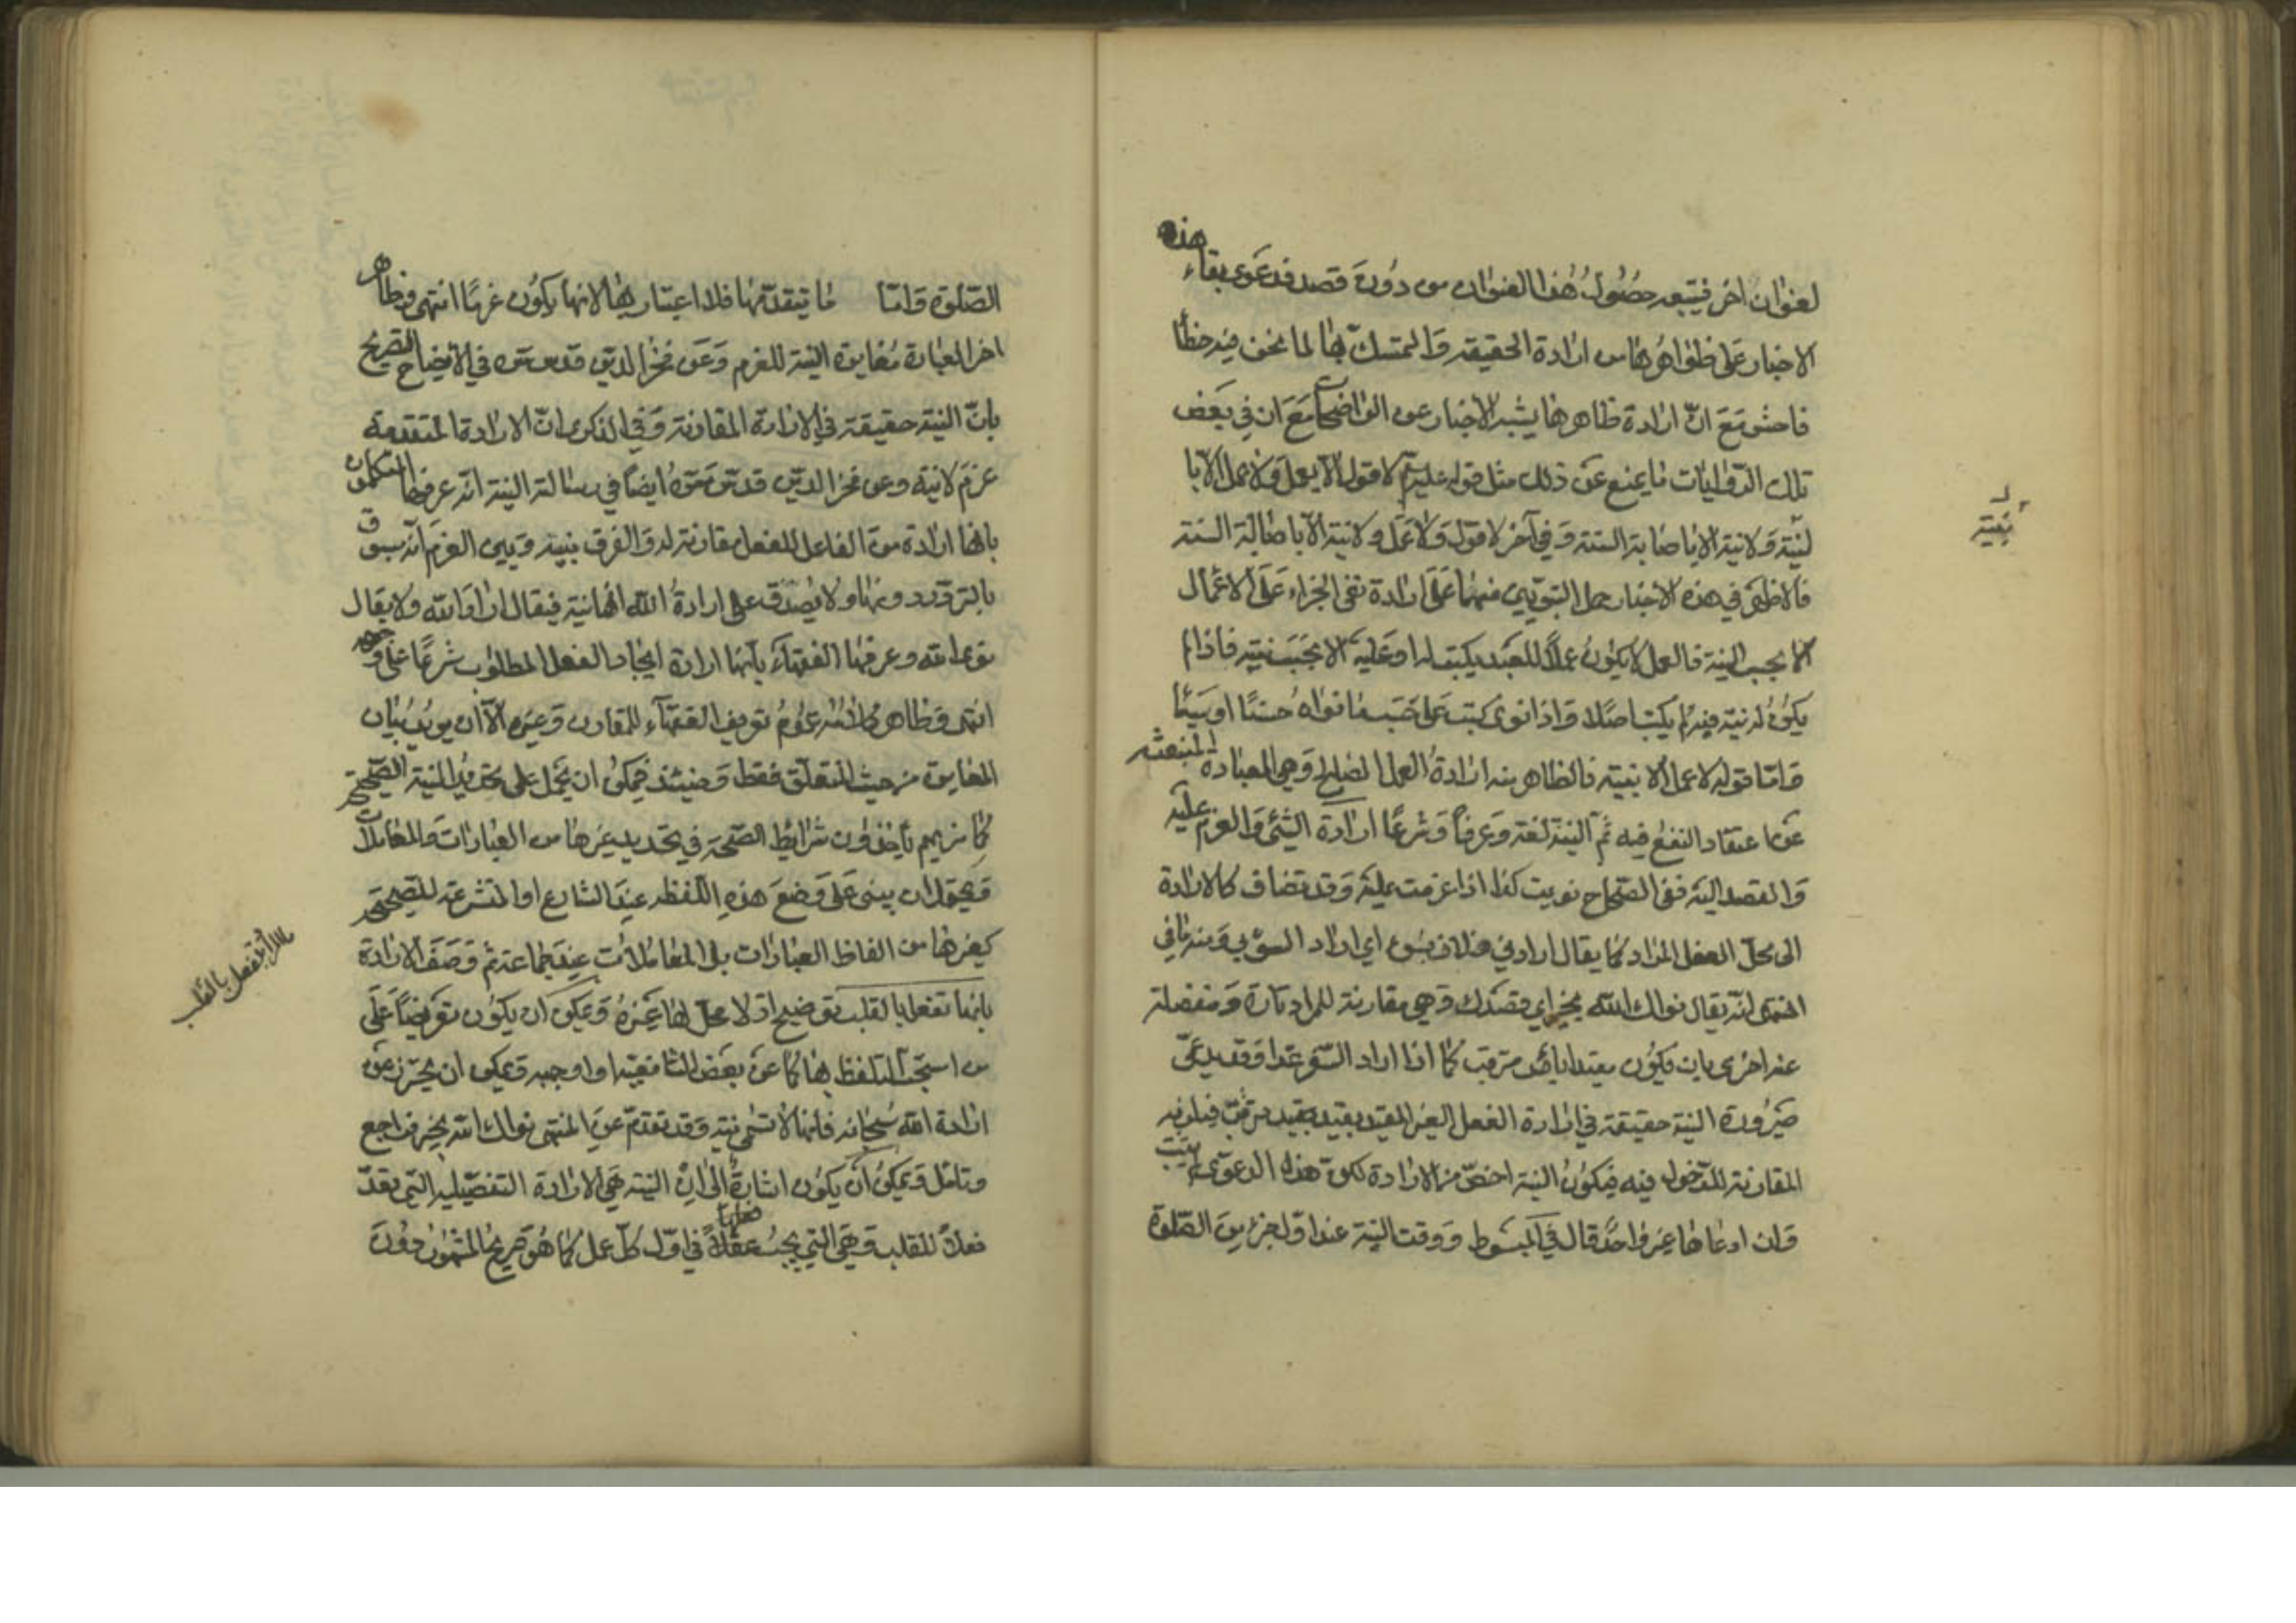 لعنوان اخر فيتبعه حصول هذا العنوان من دون قصد فدعوى بقاء هذه
الاخبار على ظواهرها من ارادة الحقيقة والتمسك بها لما نحن فيه خطأ
فاحش مع ان ارادة ظاهرها يشبه الاخبار عن الواضحات مع ان في بعض
تلك الروايات ما يمنع عن ذلك مثل قوله لا قول الا بعمل ولا عمل الا با
لنية ولا نية الا باصابة السنة وفي آخر لا قول ولا عمل ولا نية الا باصابة السنة
فالاظهر في هذه الاخبار حمل النبويين منها على ارادة نفي الجزاء على الاعمال
الا بحسب النية فالعمل لا يكون عملا للعبد يكتب له او عليه الا بحسب نيته فاذا لم
يكون له نية فيه لم يكتب اصلا واذا نوى كتب على حسب ما نواه حسنا او سيئا
واما قوله لا عمل الا بنية فالظاهر منه ارادة العمل الصالح وهي العبادة المنبعثة
عن اعتقاد النفع فيه ثم النية لغة وعرفا وشرعا ارادة الشئ والعزم عليه
والقصد اليه ففي الصحاح نويت كذا اذا عزمت عليه وقد تضاف كالارادة
الى محل الفعل المراد كما يقال ارادني فلان بسوء اي اراد السوء بي ومنه ما في
المنتهى انه يقال نواك الله بخير اي قصدك وهي مقارنة للمراد تارة ومنفصلة
عنه اخرى بان يكون مقيدا بامر مترقب كما اذا اراد السفر غدا وقد يدعى
صيرورة النية حقيقة في ارادة الفعل الغير المقيد بقيد مترقب
المقارنة للدخول فيه فيكون النية اخص من الارادة لكن هذه الدعوى لم يثبت
وان ادعاها غير واحد قال في المبسوط ووقت النية عند اول جزء من الصلوة
بنية
الصلوة واما ما يتقدمها فلا اعتبار بها لانها يكون عزما انتهى وظاهر
اخر العبارة مغايرة النية للعزم وعن فخر الدين قدس سره في الايضاح التصريح
بان النية حقيقة في الارادة المقارنة وفي الذكرى ان الارادة المتقدمة
عزم لا نية وعن فخر الدين قدس سره ايضا في رسالة النية انه عرفها المتكلمون
بانها ارادة من الفاعل للفعل مقارنة له والفرق بينه وبين العزم انه مسبوق
بالتردد دونها ولا يصدق على ارادة الله انها نية فيقال اراد الله ولا يقال
نوى الله وعرفها الفقهاء بانها ارادة ايجاد الفعل المطلوب شرعا على وجهه
انتهى وظاهر كلامه عموم تعريف الفقهاء للمقارن وغيره الا ان يريد بيان
المغايرة من حيث المتعلق فقط وحينئذ فيمكن ان يحمل على تحديد النية الصحيحة
كما نريهم يأخذون شرائط الصحة في تحديد غيرها من العبادات والمعاملات
ويحتمل ان يبنى على وضع هذه اللفظة عند الشارع او المتشرعة للصحيحة
كغيرها من الفاظ العبادات بل المعاملات عند جماعة ثم وصف الارادة
بانها تفعل بالقلب توضيح اذ لا محل لها غيره ويمكن ان يكون تعريضا على
من استحب التلفظ بها كما عن بعض الشافعية او اوجبه ويمكن ان يحترز عن
ارادة الله سبحانه فانها لا تسمى نية وقد تقدم عن المنتهى نواك الله بخير فراجع
وتامل ويمكن ان يكون اشارة الى ان النية هي الارادة التفصيلية التي تعد
فعلا للقلب وهي التي يجب عقلا فعلها في اول كل عمل كما هو صريح المشهور دون
تفعل بالقلب